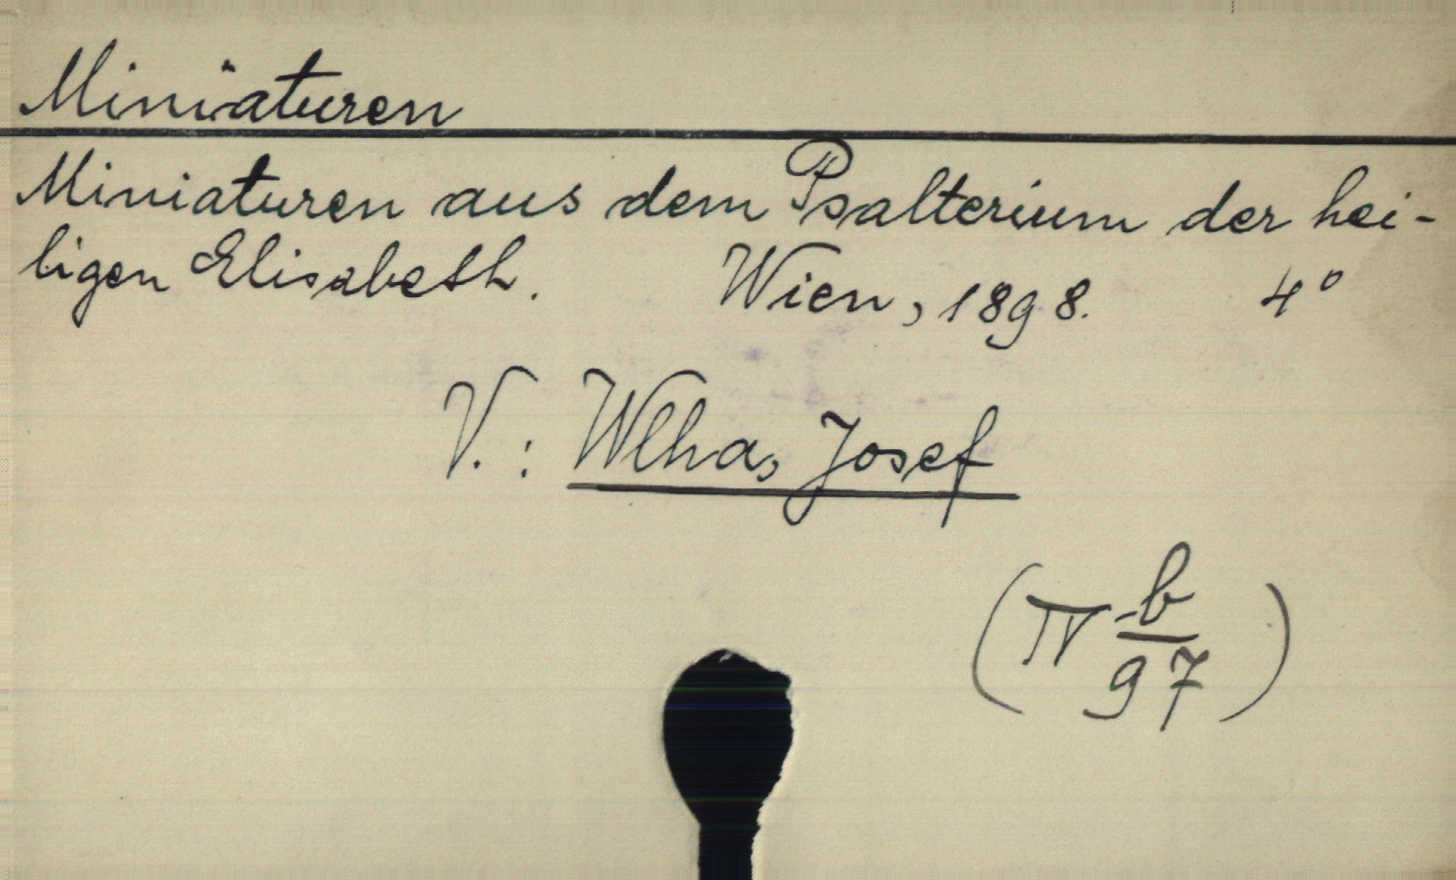 Miniaturen
Miniaturen aus dem Psalterium der hei-
ligen Elisabeth. Wien, 1898. 4°
V.: Wlha, Josef
(IV b/97)